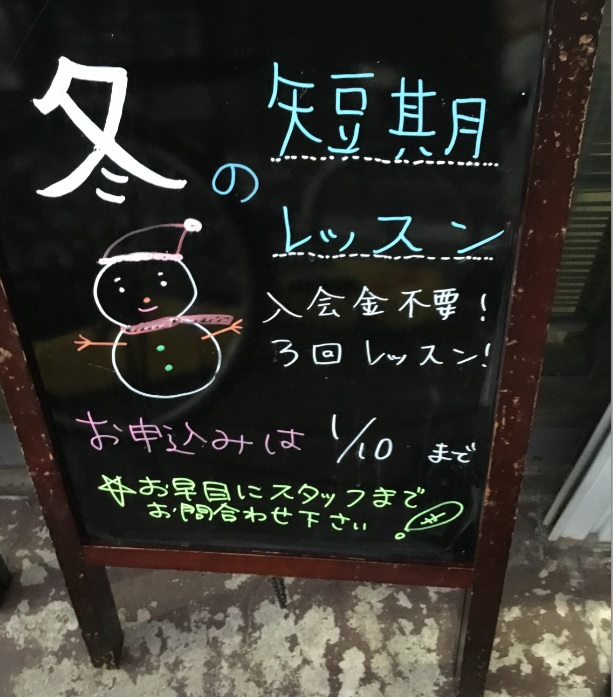 冬の短期
レッスン
入会金不要!
3回レッスン!
お申込みは 1/10 まで
☆お早目にスタッフまで
お問合わせ下さい